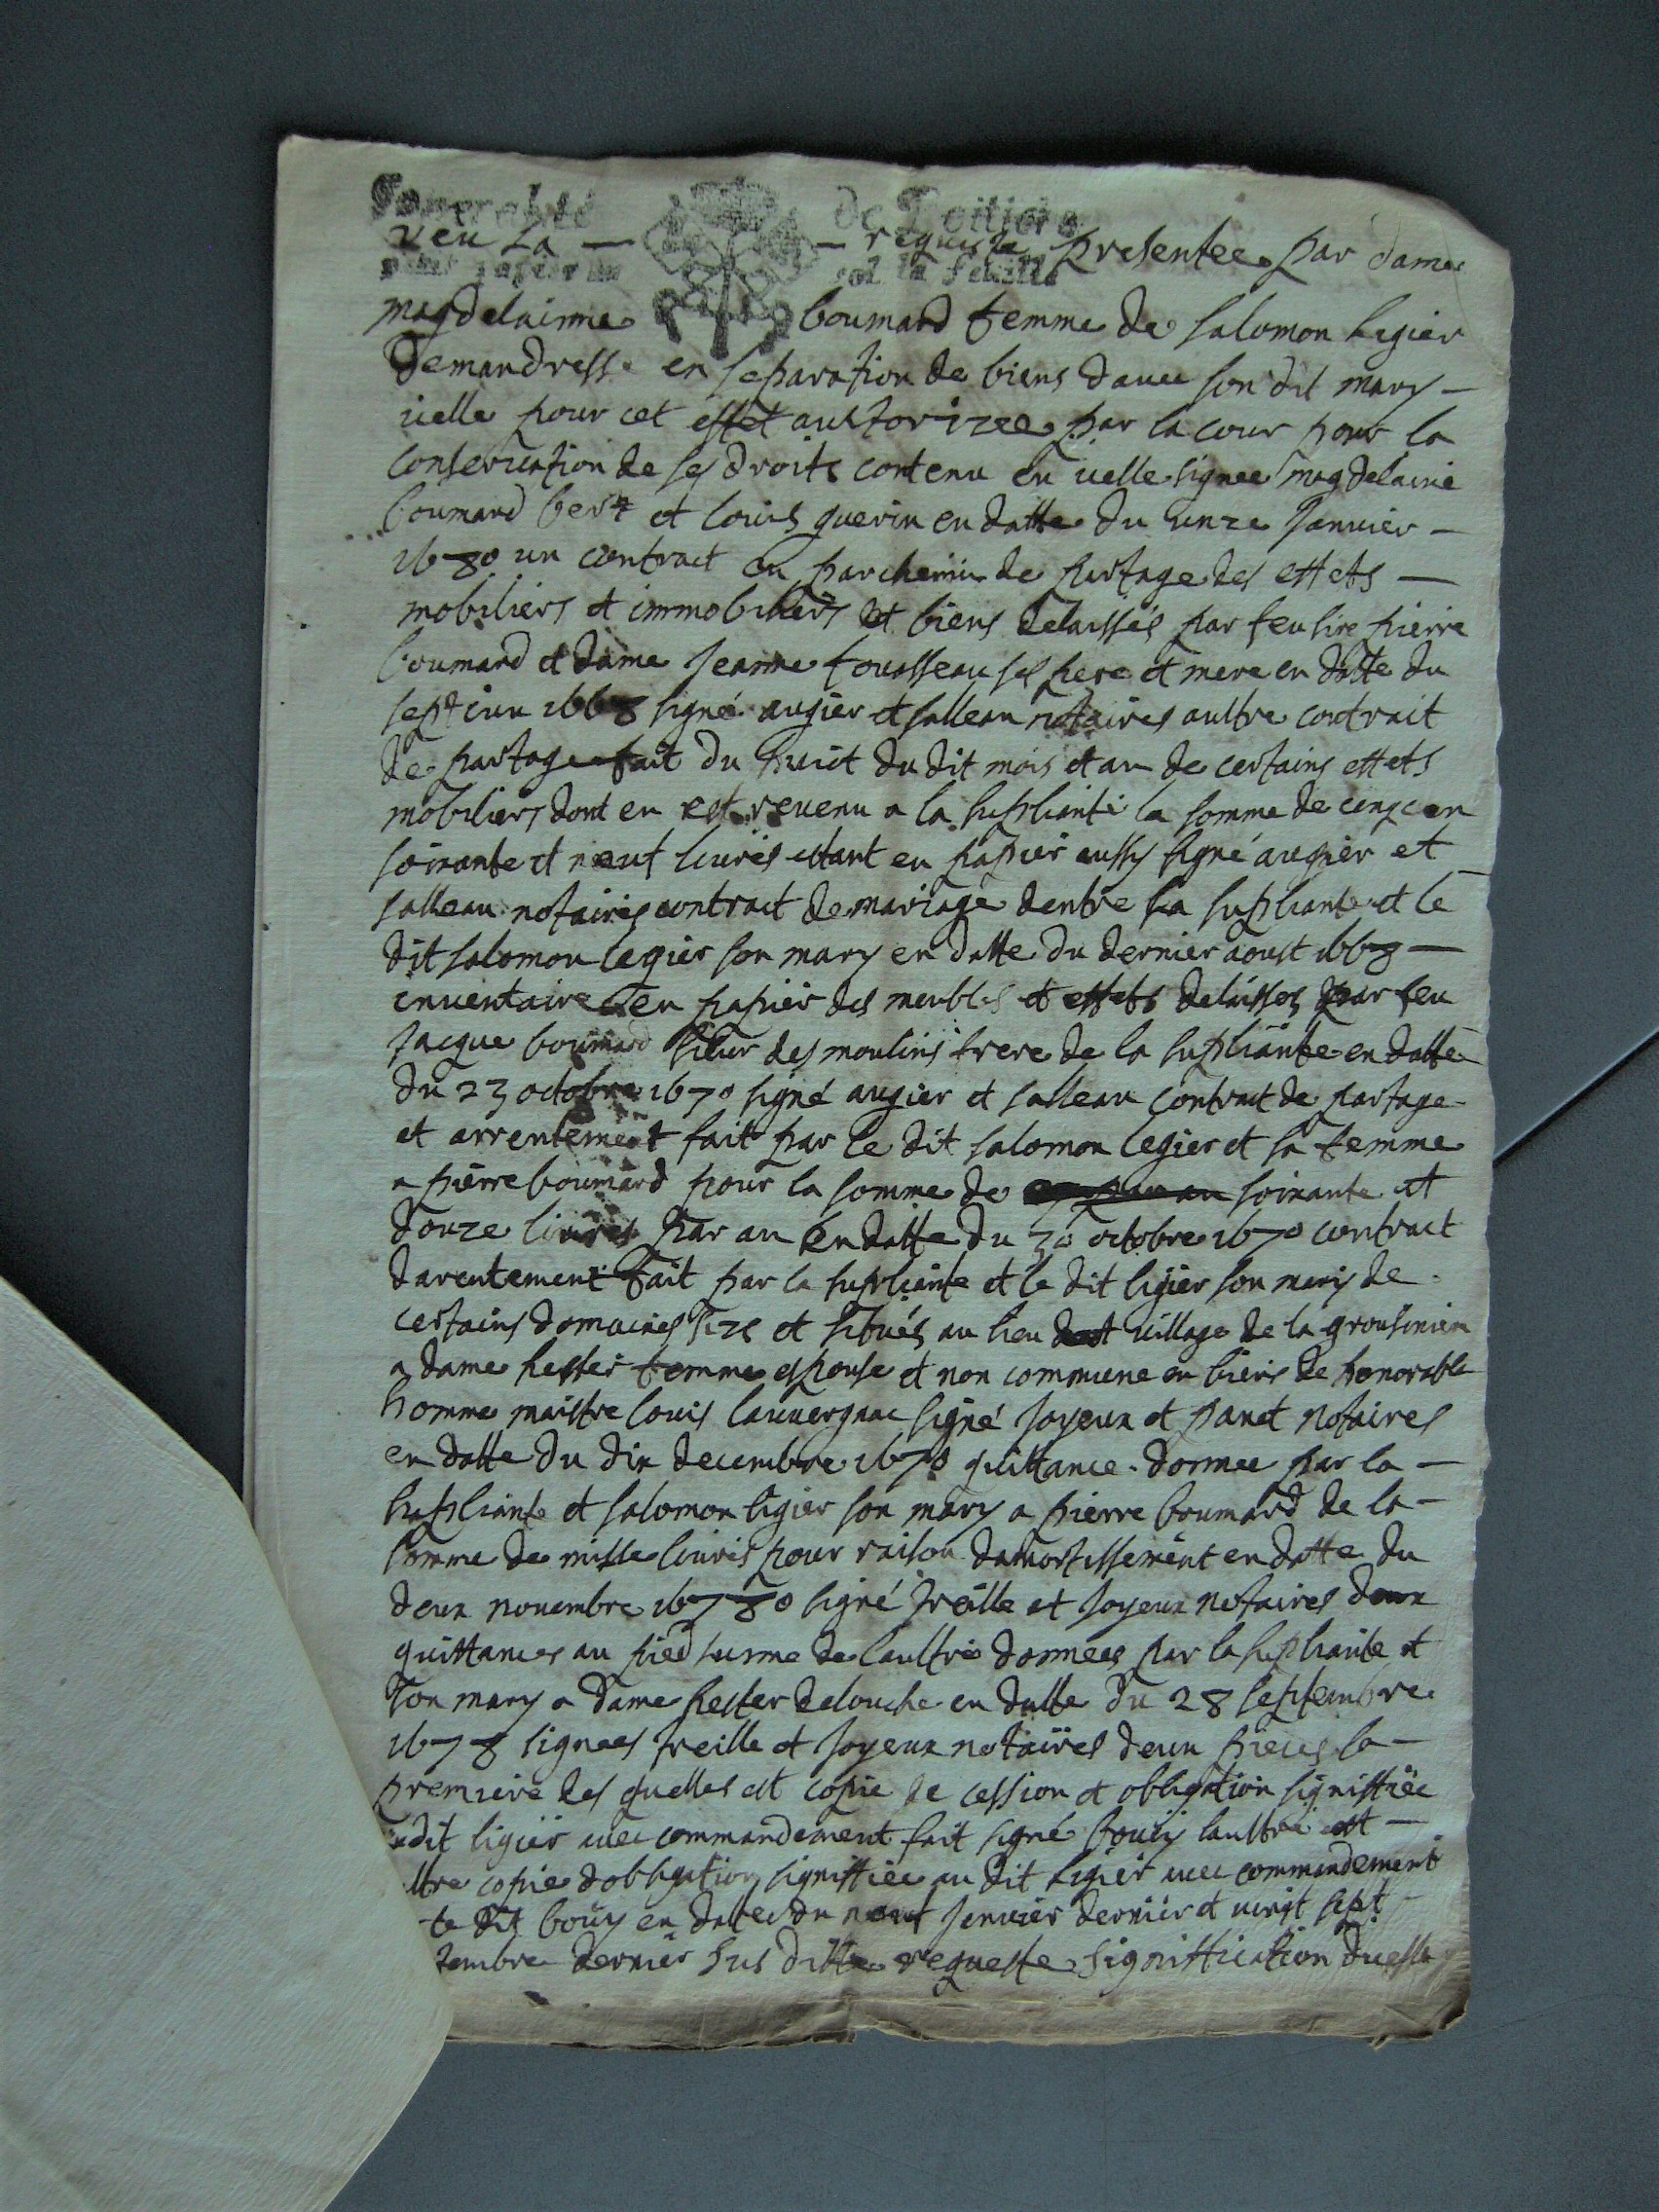 Generalité de Poitiers
Veu La — — requeste presentee par dame
la feuille
magdelainne boumard femme de salomon legier
Demandresse en separation de biens davec son dit mary —
icelle pour cet effet authorizee par la cour pour la
conservation de ses droits contenu en icelle signee magdelaine
boumard et louis guerin en datte du unze Janvier —
1680 un contract en parchemin de partage des effets —
mobiliers et immobiliers et biens delaissés par feu sire pierre
boumard et dame Jeanne fouasseau ses pere et mere en datte du
sept iun 1668 signé augier et salleau notaires aultre contrait
de partage fait du huict du dit mois et an de certains effets
mobiliers dont en est revenu a la supliante la somme de cinq cen
soixante et neuf livres estant en papier aussy signé augier et
salleau notaires contract de mariage dentre la supliante et le
dit salomon legier son mary en datte du dernier aoust 1668 —
inventaire en papier des meubles et effets delaisses par feu
Jacque boumard sieur des moulins frere de la supliante en datte
du 23 octobre 1670 signé augier et salleau contract de partage
et arrentement fait par le dit salomon legier et sa femme
a pierre boumard pour la somme de soixante et
douze livres par an en datte du 30 octobre 1670 contract
darentement fait par la supliante et le dit ligier son mary de
certains domaines size et situés au lieu et village de la grousiniere
a dame hester femme espouse et non commune en biens de honorable
homme maistre louis lauvergnac signé Joyeux et panet notaires
en datte du dix decembre 1670 quittance donnee par la —
supliante et salomon ligier son mary a pierre boumard de la —
somme de mille livres pour raison damortissement en datte du
deux novembre 1670 signé Treille et Joyeux notaires deux
quittances au pied lunne de laultre donnees par la supliante et
son mary a dame hester delouche en datte du 28 septembre
1678 signees Treille et Joyeux notaires deux pieces la —
premiere des quelles est copie de cession et obligation signiffiee
audit ligier avec commandement fait signé bouïy laultre est —
aultre copie dobligation signiffiee au dit legier avec commandement
le dit bouy en dattes du neuf Janvier dernier et vingt sept —
tembre dernier sus ditte requeste signiffication dicelle